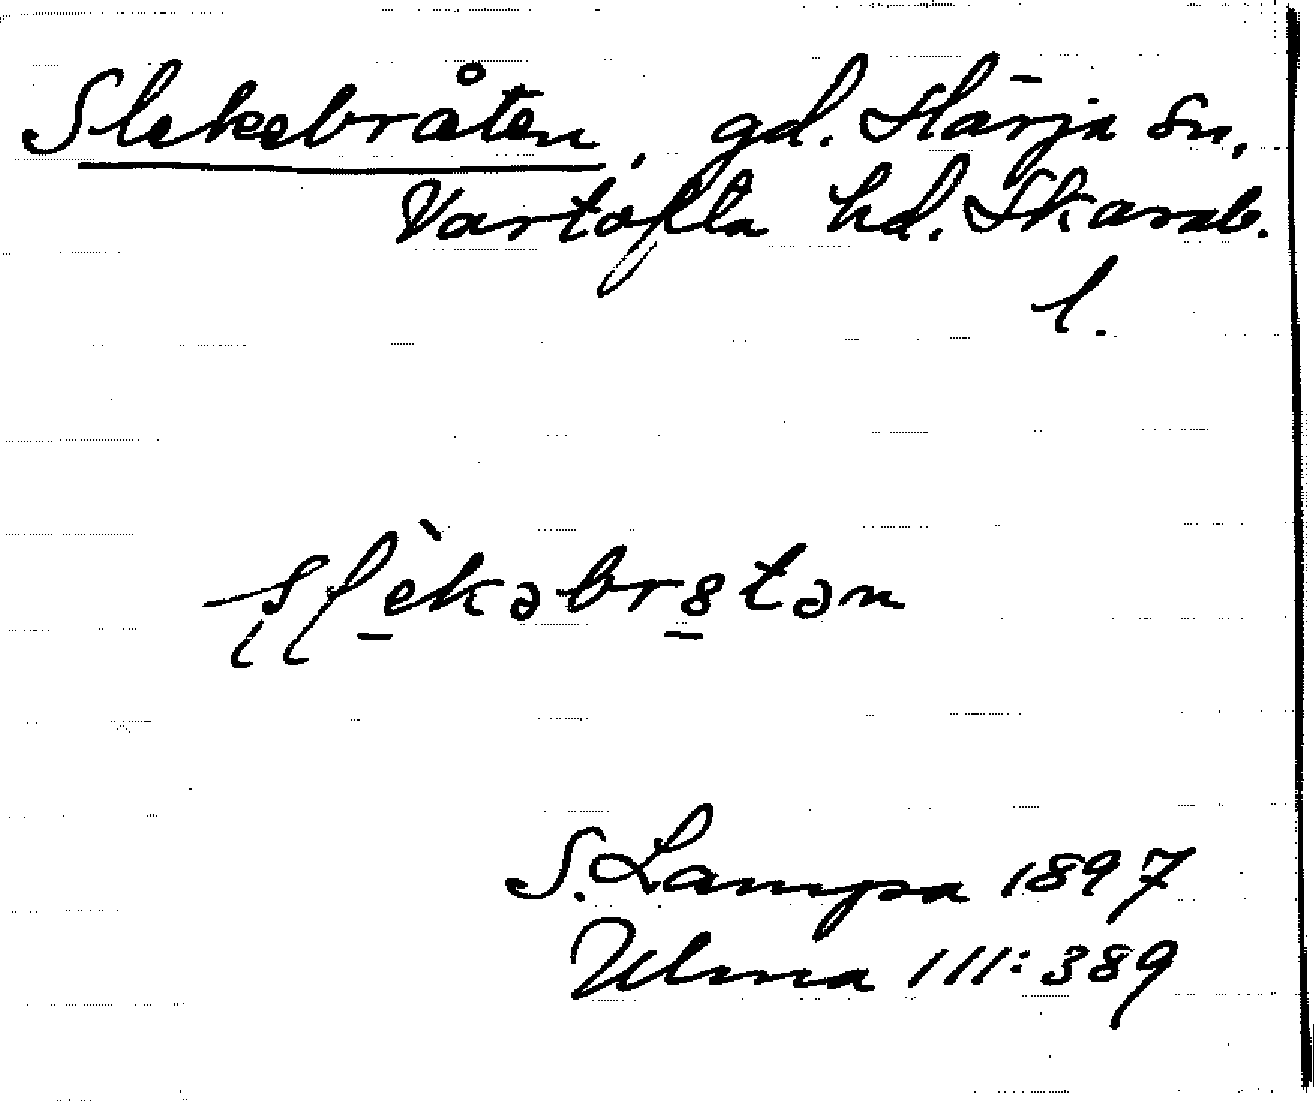 Slekebråten, gd. Härja sn,
Vartofta hd. Skarab.
l.
sl̀ekəbr8tən
S. Lampa 1897
Ulma 111:389